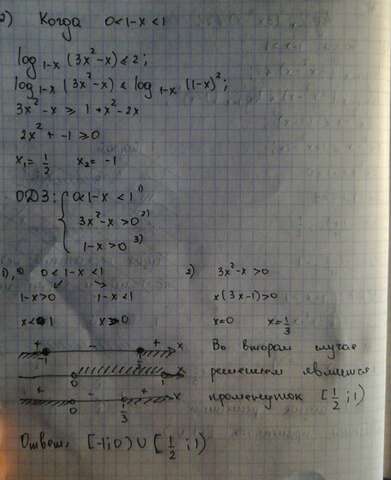 2) Когда 0<1-x<1
log₁₋ₓ (3x²-x) ≤ 2;
log₁₋ₓ (3x²-x) ≤ log₁₋ₓ (1-x)²;
3x²-x ≥ 1+x²-2x
2x² + -1 ≥0
x₁= 1/2 x₂= -1
ОДЗ: { 0<1-x <1 ¹⁾
3x²-x >0 ²⁾
1-x>0 ³⁾
0<1-x<1
1-x>0 1-x<1
x<1 x>0
2) 3x²-x >0
x(3x-1)>0
x=0 x=1/3
+ - + x
-1 1/2
0 1 x
+ - + x
0 1/3
Во втором случае
решением является
промежуток [1/2 ;1)
Ответ: [-1;0) ∪ [1/2 ;1)